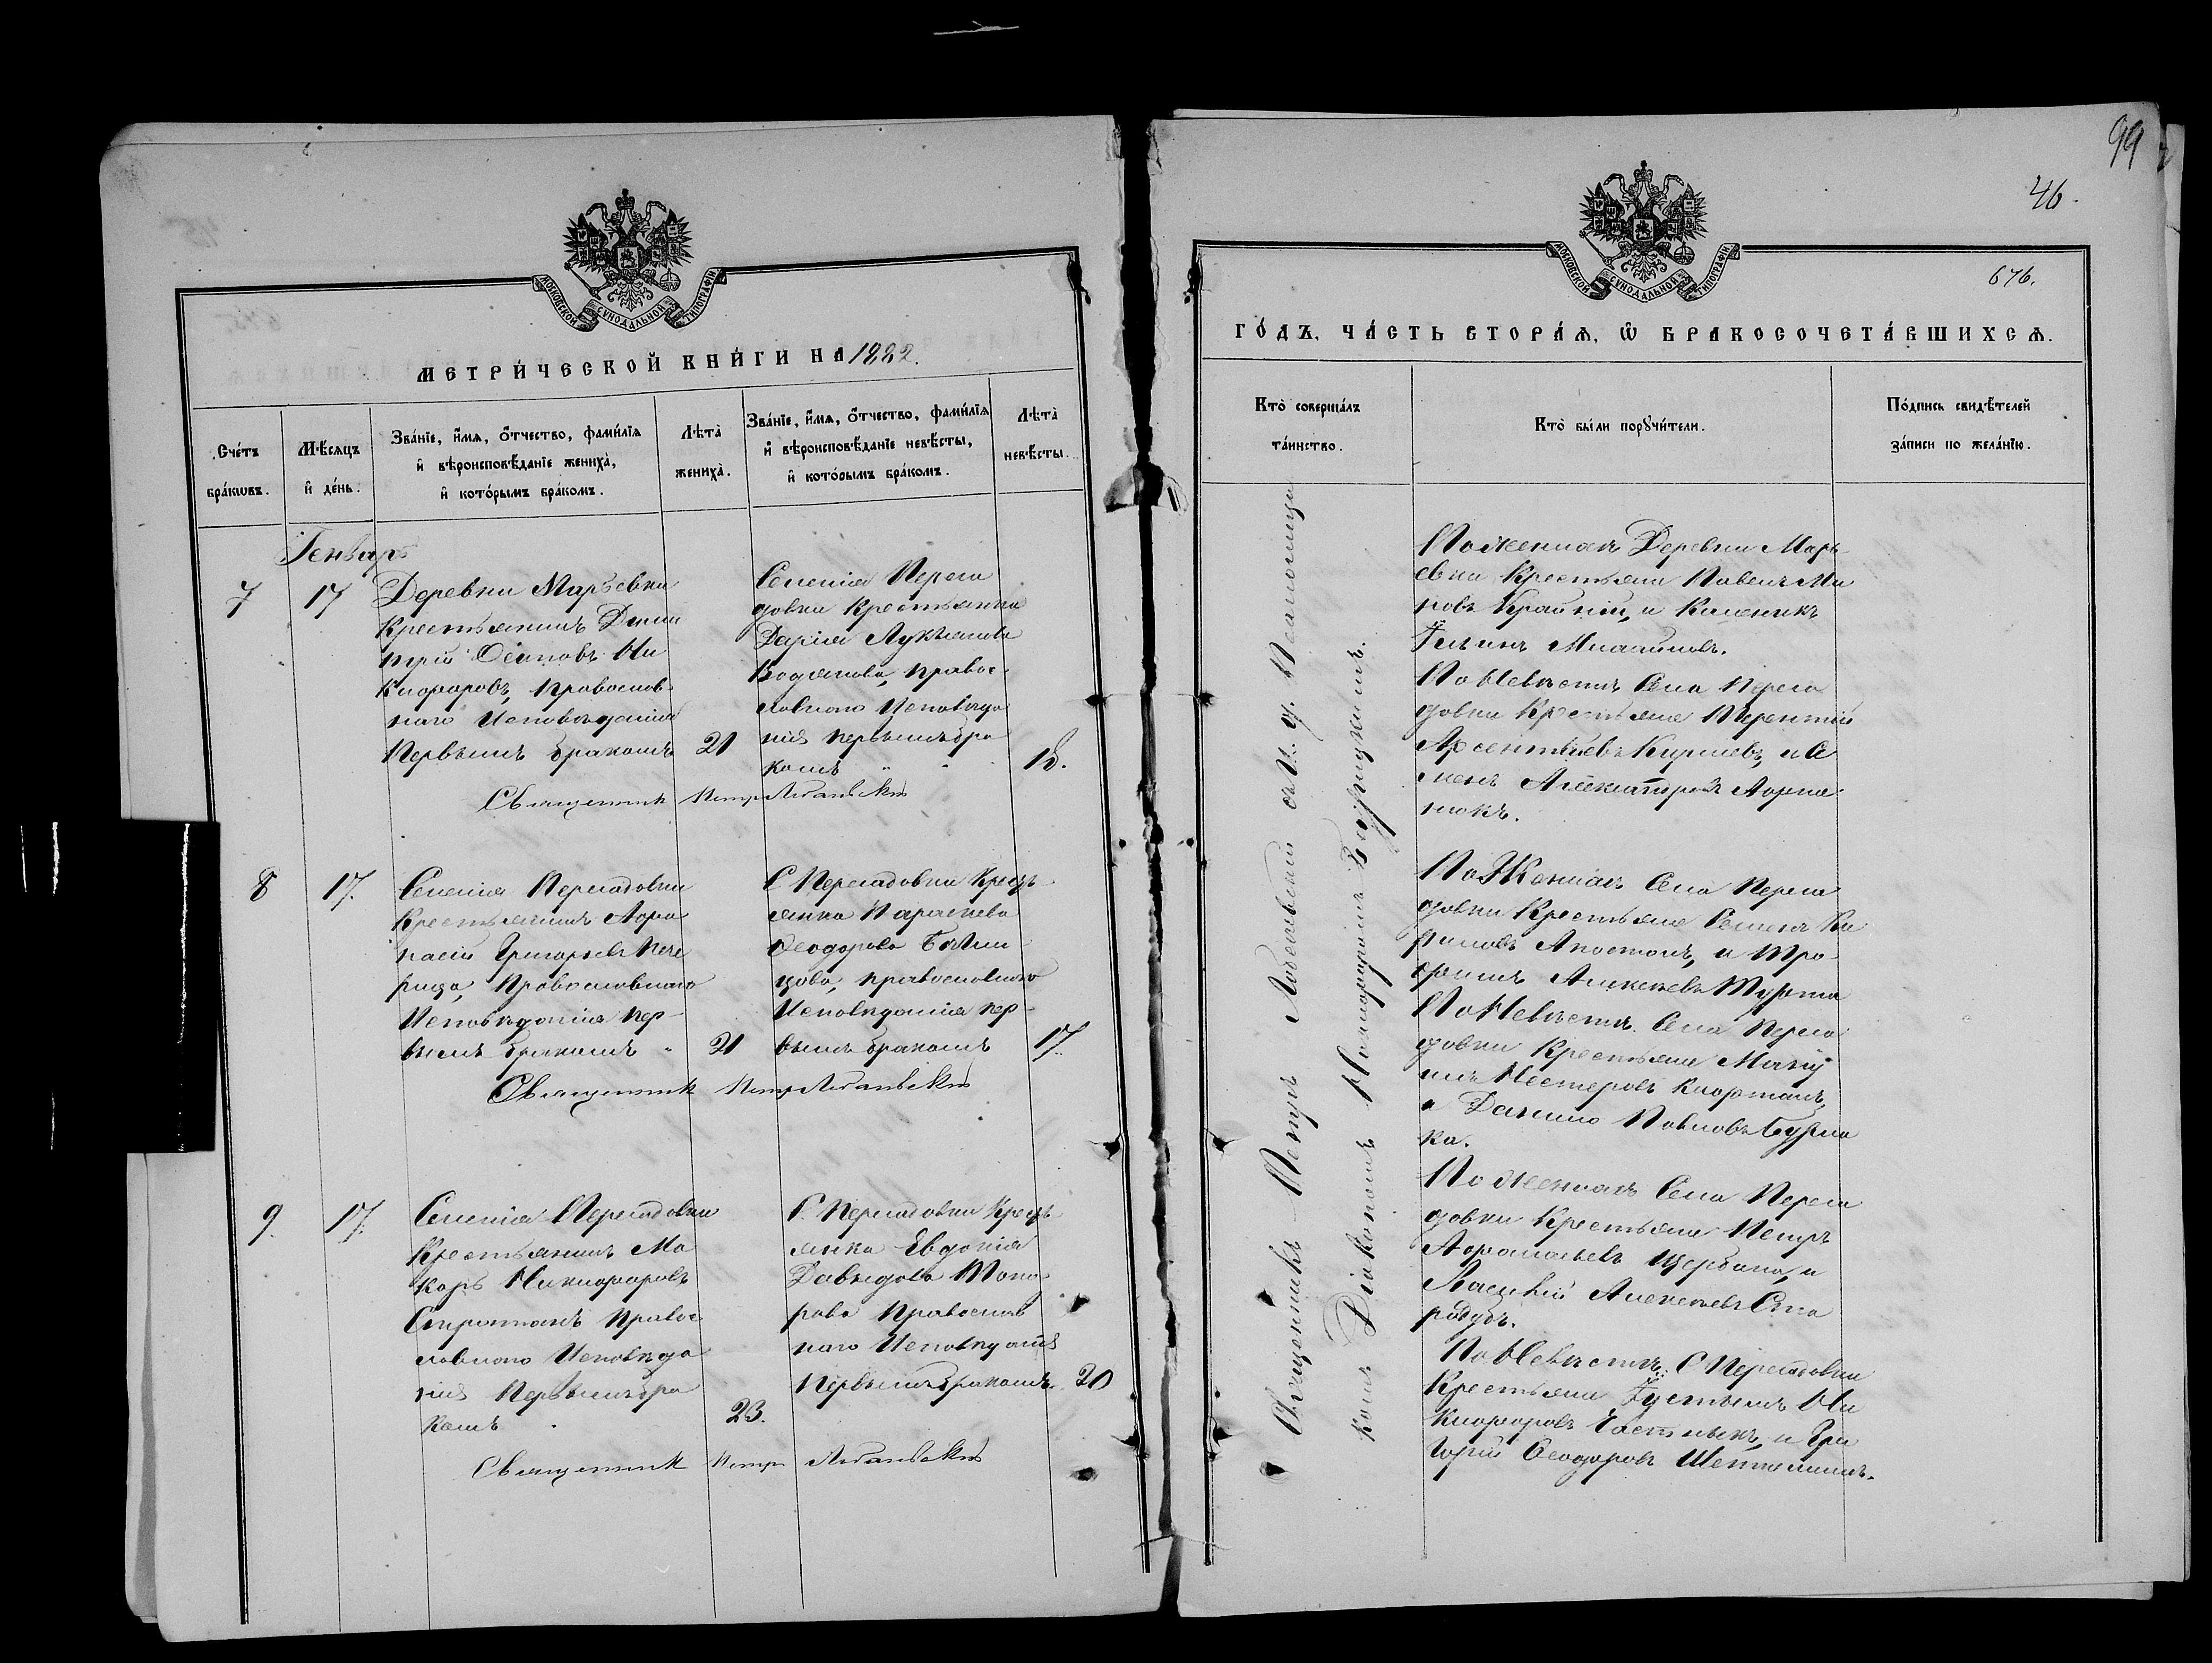 99
46.
676.
МОСКОВСКОЙ СѴНОДАЛЬНОЙ ТИПОГРАФІИ
МЕТРИ́ЧЕСКОЙ КНИ́ГИ НА 1882.
Сче́тъ бра́кωвъ.
Мѣ́сяцъ и҆ де́нь.
Зва́нїе, и҆́мѧ, ѻ҆́тчество, фами́лїѧ
и҆ вѣроисповѣ́данїе жениха̀,
и҆ кото́рымъ бра́комъ.
Лѣта̀
жениха̀.
Зва́нїе, и҆́мѧ, ѻ҆́тчество, фами́лїѧ
и҆ вѣроисповѣ́данїе невѣ́сты,
и҆ кото́рымъ бра́комъ.
Лѣта̀
невѣ́сты.
Генварь
7
17
Деревни Марьевки
Крестьянинъ Дими
трій Осиповъ Ни
кифоровъ, Православ
наго Исповѣданія
Первымъ бракомъ
21
Селенія Переса
довки Крестьянка
Дарія Лукьянова
Водянова, правос
лавнаго Исповѣда
нія первымъ бра
комъ
18.
Священникъ Петръ
8
17.
Селенія Пересадовки
Крестьянинъ Афа
насій Григорьевъ Пече
рица, Православнаго
Исповѣданія пер
вымъ бракомъ
21
С Пересадовки Крест
янка Параскева
Ѳеодорова
цова, православнаго
Исповѣданія пер
вымъ бракомъ
17.
Священникъ Петръ
9.
17.
Селенія Пересадовки
Крестьянинъ Ма
каръ Никифоровъ
правос
лавнаго Исповѣда
нія Первымъ бра
комъ
23.
С. Пересадовки Крест
янка Евдокія
Давыдова Топо
рова Православ
наго Исповѣданія
Первымъ бракомъ
20
Священникъ Петръ
МОСКОВСКОЙ СѴНОДАЛЬНОЙ ТИПОГРАФІИ
ГО́ДЪ, ЧА́СТЬ ВТОРА́Ѧ, Ѽ БРАКОСОЧЕТА́ВШИХСѦ.
Кто̀ соверша́лъ
та́инство.
Кто̀ бы́ли порꙋчи́тели.
По́дпись свидѣ́телей
за́писи по жела́нїю.
Священникъ Петръ
Діакономъ
По Женихѣ Деревни Марь
евки Крестьяне Павелъ
Крайній, и Каленикъ
По Невѣстѣ Села Переса
довки Крестьяне Терентій
Арсентіевъ Киріевъ, и Се
менъ Александровъ
По Женихѣ Села Переса
довки Крестьяне Семенъ Ки
риловъ Апостолъ, и Тро
фимъ Алексѣевъ Турта
По Невѣстѣ Села Переса
довки Крестьяне
Нестеровъ
и Данило Павловъ Бурла
ка.
По Женихѣ Села Переса
довки Крестьяне Петръ
Афанасьевъ Щербина, и
Алексѣевъ Ста
родубъ.
По Невѣстѣ С Пересадовки
Крестьяне Густинъ Ни
кифоровъ и Гри
горій Ѳеодоровъ